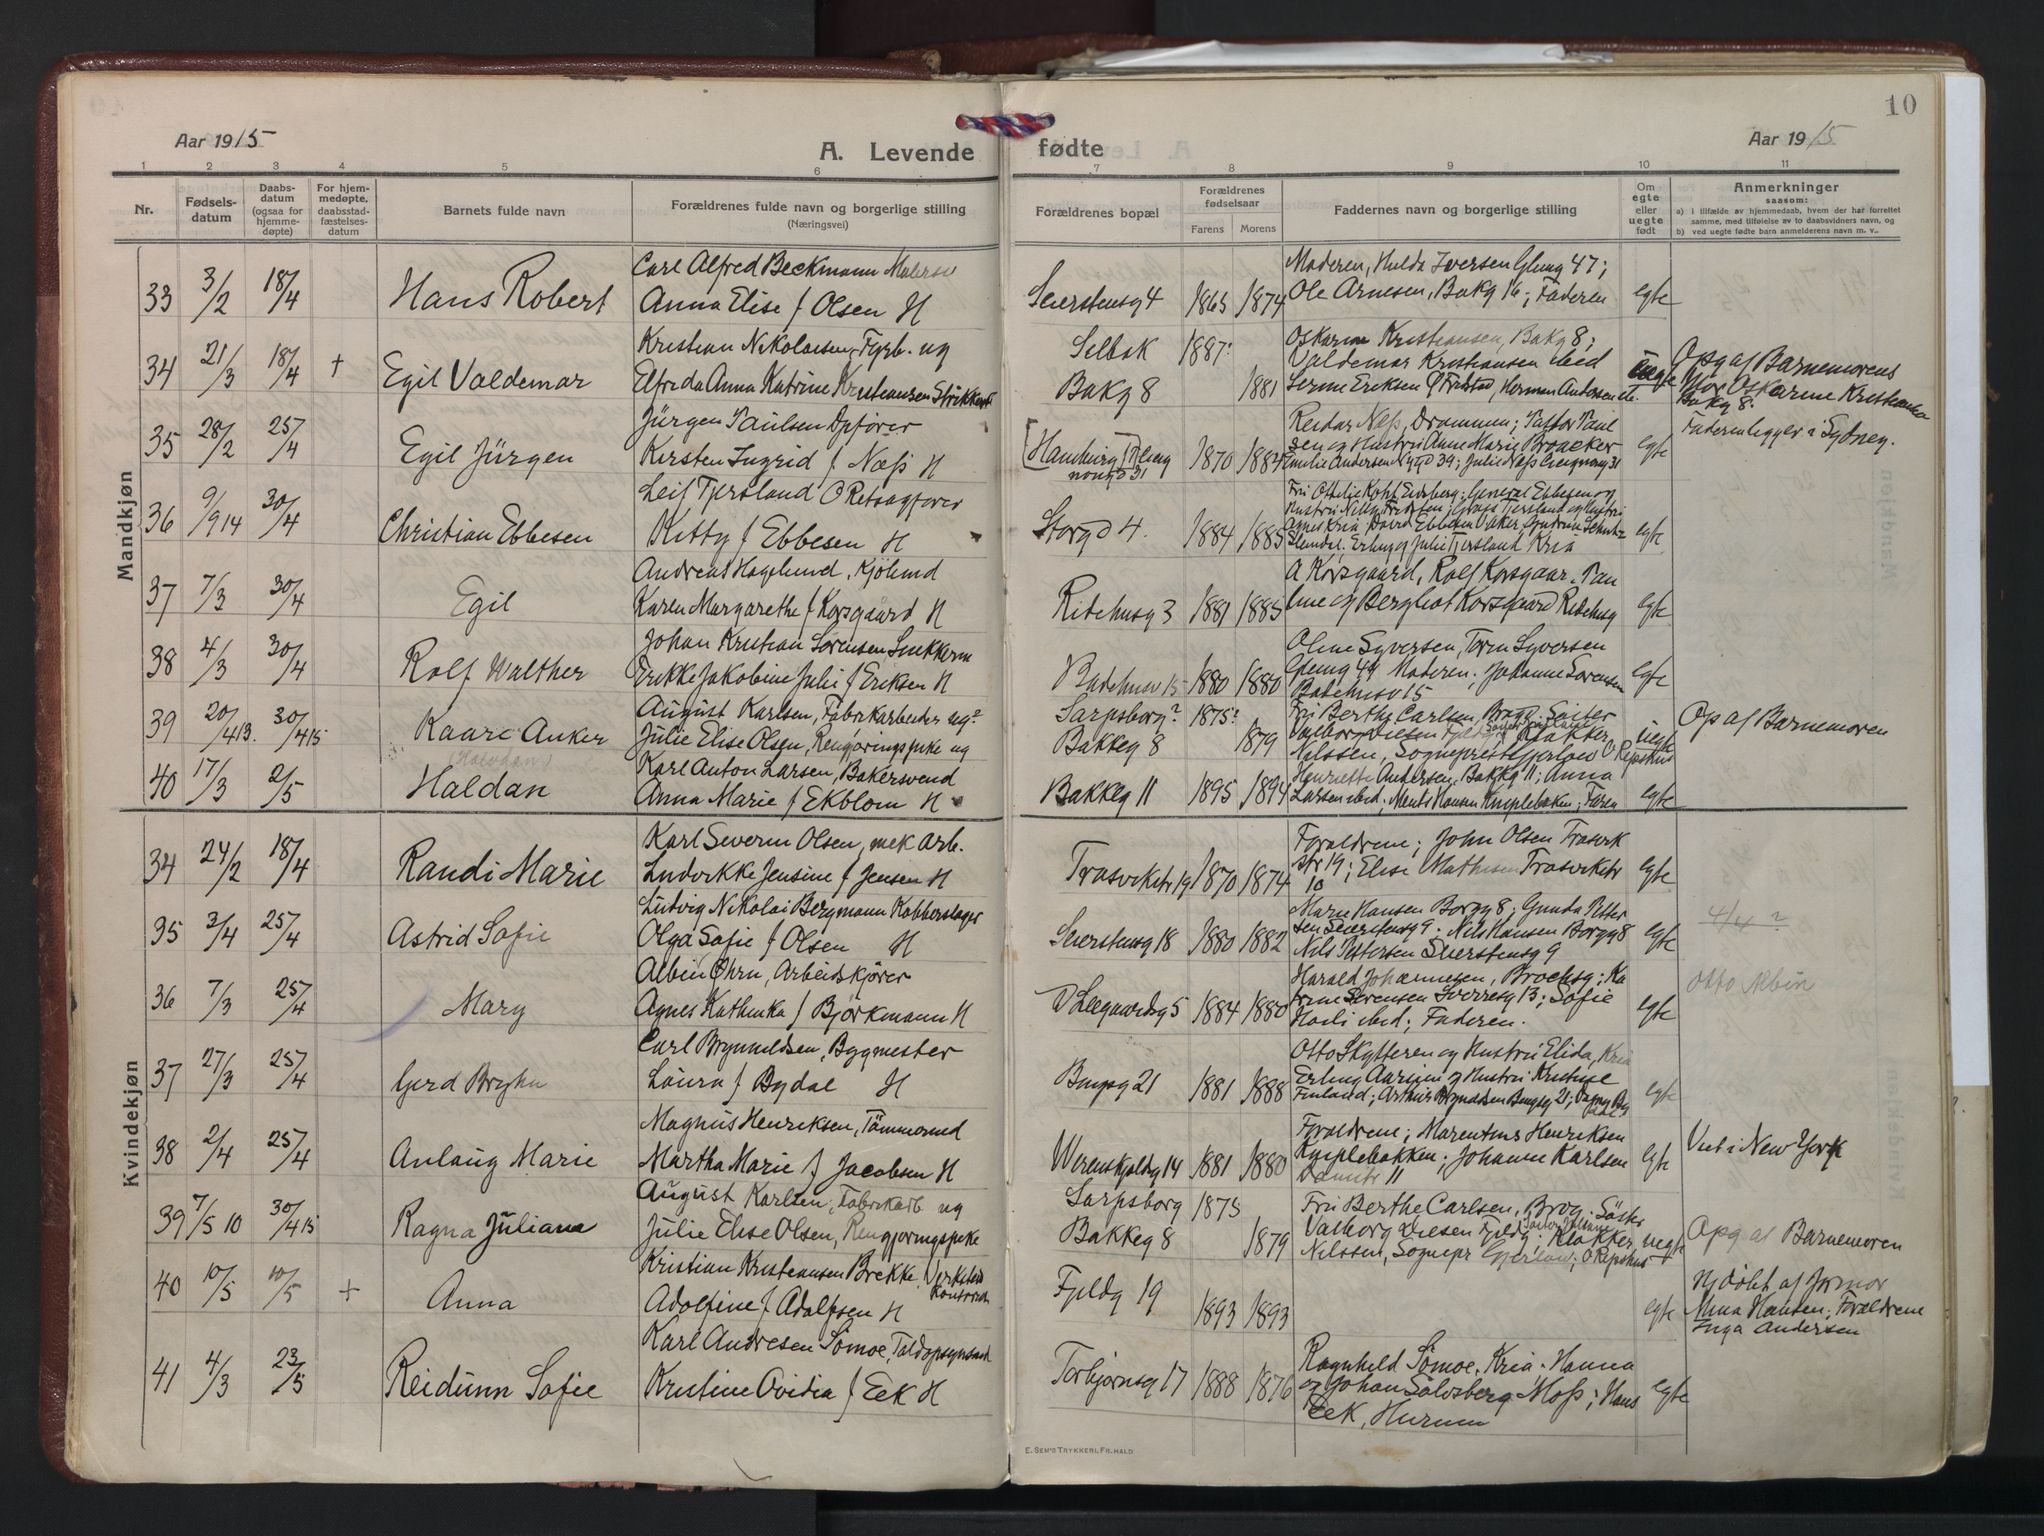 Aar 1915
A. Levende
fødte
10
Aar 1915
1 2 3 4 5 6 7 8 9 10 11
Nr.
Fødsels-
datum
Daabs-
datum
(ogsaa for
hjemme-
døpte)
For hjem-
medøpte,
daabsstad-
fæstelses-
datum
Barnets fulde navn
Forældrenes fulde navn og borgerlige stilling
(Næringsvei)
Forældrenes bopæl
Forældrenes
fødselsaar
Farens Morens
Faddernes navn og borgerlige stilling
Om
egte
eller
uegte
født
Anmerkninger
saasom:
a) i tilfælde av hjemmedaab, hvem der har forrettet
samme, med tilføielse av to daabsvidners navn, og
b) ved uegte fødte barn anmelderens navn m. v..
Mandkjøn
33 3/2 18/4 Hans Robert
Carl Alfred Beckmann
Anna Elise f Olsen H
Seierstensg 4 1865 1874
Moderen, Hulda Iversen Glemg 47;
Ole Arnesen, Bakg 16; Faderen
egte
34 21/3 18/4 + Egil Valdemar
Kristian Nikolaisen, Fyrb. ug
Elfrida Anna Katrine Kristiansen
Selbak 1887
Bakg 8 1881
Oskarine Kristiansen, Bakg 8;
Valdemar Kristiansen ibid
uegte
Opg af Barnemorens
Mor Oskarine Kristiansen
Bakg 8.
35 28/2 25/4 Egil Jürgen
Jürgen Paulsen Opfører
Kirsten Ingrid f Næss H
Hamburg 1870 1884
Reidar Næss, Drammen; Pastor Paul
sen og Hustru Anne Marie Broacker
egte
Faderen ligger i Sydney.
36 9/9 14 30/4 Christian Ebbesen
Leif Tjersland O Retsagfører
Kitty f Ebbesen H
Storgd 4. 1884 1885
egte
37 7/3 30/4 Egil
Andreas Hagelund, Kjøbmd
Karen Margarethe f Korsgaard H
Ridehusg 3 1881 1885
A Korsgaard, Rolf Korsgaar, Pau
line og Bergliot Korsgaard Ridehusg
egte
38 4/3 30/4 Rolf Walther
Johan Kristian Sørensen, Snekkerm
Erikke Jakobine Juli f Eriksen H
Badehusv 15 1880 1880
Oline Syversen, Toru Syversen
Glemg 49 Moderen; Johanne Sørensen
Badehusv 15
egte
39 20/4 13. 30/4 15 Kaare Anker
August Karlsen, Fabrikarbeider ug?
Julie Elise Olsen, Rengjøringspike ug
Sarpsborg? 1875?
Bakkeg 8 1879
Fru Berthe Carlsen, Brogd. Søster
Nilssen, Sogneprest Gjerløw O Repshus
uegte
Op af Barnemoren
40 17/3 2/5 Haldan
Karl Anton Larsen, Bakersvend
Anna Marie f Ekblom H
Bakkeg 11 1895 1894
Henriette Andersen, Bakkg 11; Anna
Larsen ibid. Hansen Kniplebakken; Faren
egte
Kvindekjøn
34 24/2 18/4 Randi Marie
Karl Severin Olsen, mek arb.
Ludvikke Jensine f Jensen H
Trosvikstr 19 1870 1874
Forældrene; John Olsen Trosvik
str 19; Elise Mathisen Trosvikstr
10
egte
35 3/4 25/4 Astrid Sofie
Ludvig Nikolai Bergmann Kobberslager
Olga Sofie f Olsen H
Seierstensg 18 1880 1882
Marie Hansen Borgg 8; Gunda Petter
sen Seierstensg 9. Nils Hansen Borgg 8
Nils Pettersen Seierstensg 9
egte
4/4 ?
36 7/3 25/4 Mary
Albin Öhrn, Arbeidskjører
Agnes Kathinka f Björkmann H
1884 1880
Harald Johannesen, Brochsg; Ka
trine Sørensen Sverresg 13; Sofie
ibid; Faderen.
egte
Otto Albin
37 27/3 25/4 Gerd Bryhn
Carl Brynildsen, Bygmester
Laura f Bydal H
Bingsg 21 1881 1888
Otto Skytteren og Hustru Elida, Kria
Erling Aarsjen og Hustru Kristine
Finland;
egte
38 2/4 25/4 Anlaug Marie
Magnus Henriksen, Tømmermd
Martha Marie f Jacobsen H
Werenskjoldg 14 1881 1880
Forældrene; Marentius Henriksen
Kniplebakken; Johanne Karlsen
egte
Viet i New York
39 7/5 10 30/4 15 Ragna Juliana
August Karlsen, Fabrikarb ug
Julie Elise Olsen, Rengjøringspike
Sarpsborg 1875
Bakkeg 8 1879
Fru Berthe Carlsen, Brog. Søster
Nilssen, Sognepr Gjerløw; O Repshus
uegte
Opg af Barnemoren
40 10/5 10/5 + Anna
Kristian Kristiansen Brekke,
Adolfine f Adolfsen H
Fjeldg 19
1893 1893
egte
Hjdøbt af Jormor
Hansen; Forældrene
Inga Andersen
41 4/3 23/5 Reidunn Sofie
Karl Andresen Sømoe, Toldopsynsmd
Kristine Ovidia f Eek H
Torbjørnsg 17 1888 1876
Ragnhild Sømoe, Kria. Hanna
og Johan Solvsberg Moss; Hans
Eek, Hurum
egte
E. SEM'S TRYKKERI, FR.HALD